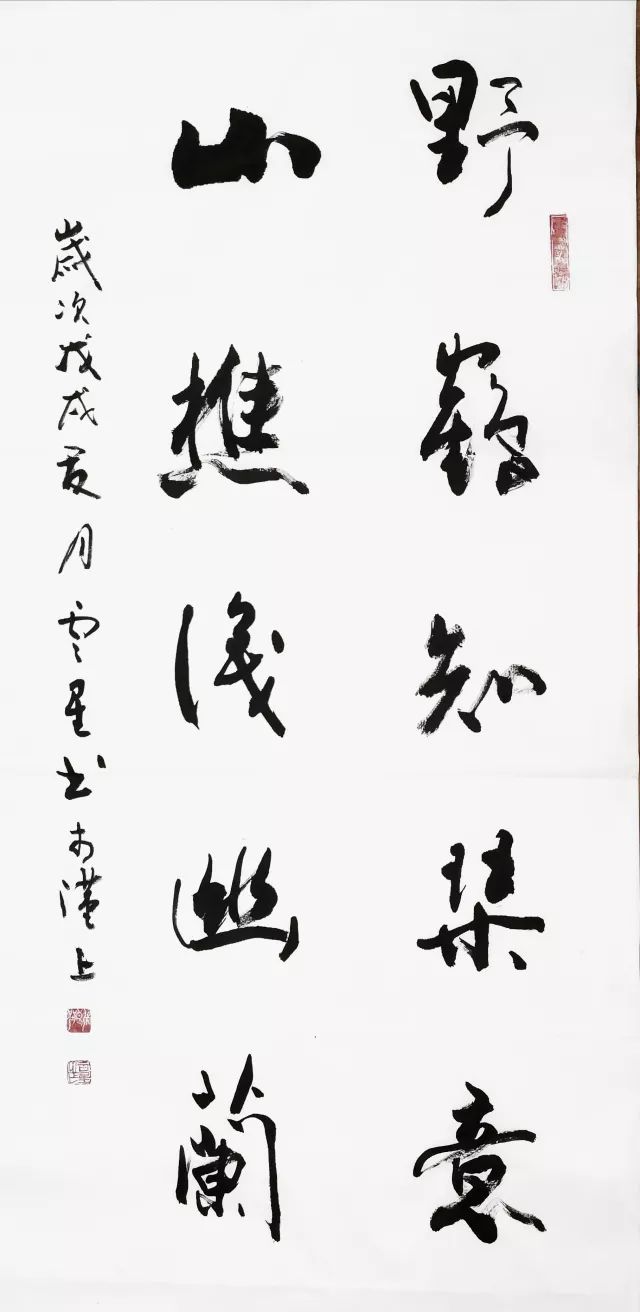 野鶴知琴意
山樵識幽蘭
歲次戊戌夏月雲星书於漢上